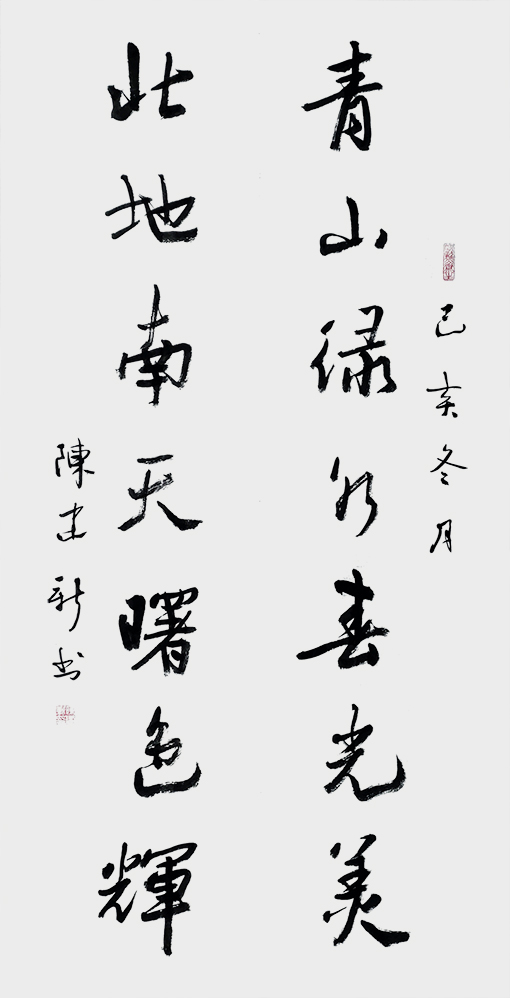 己亥冬月
青山绿水春光美
北地南天曙色輝
陳建新书